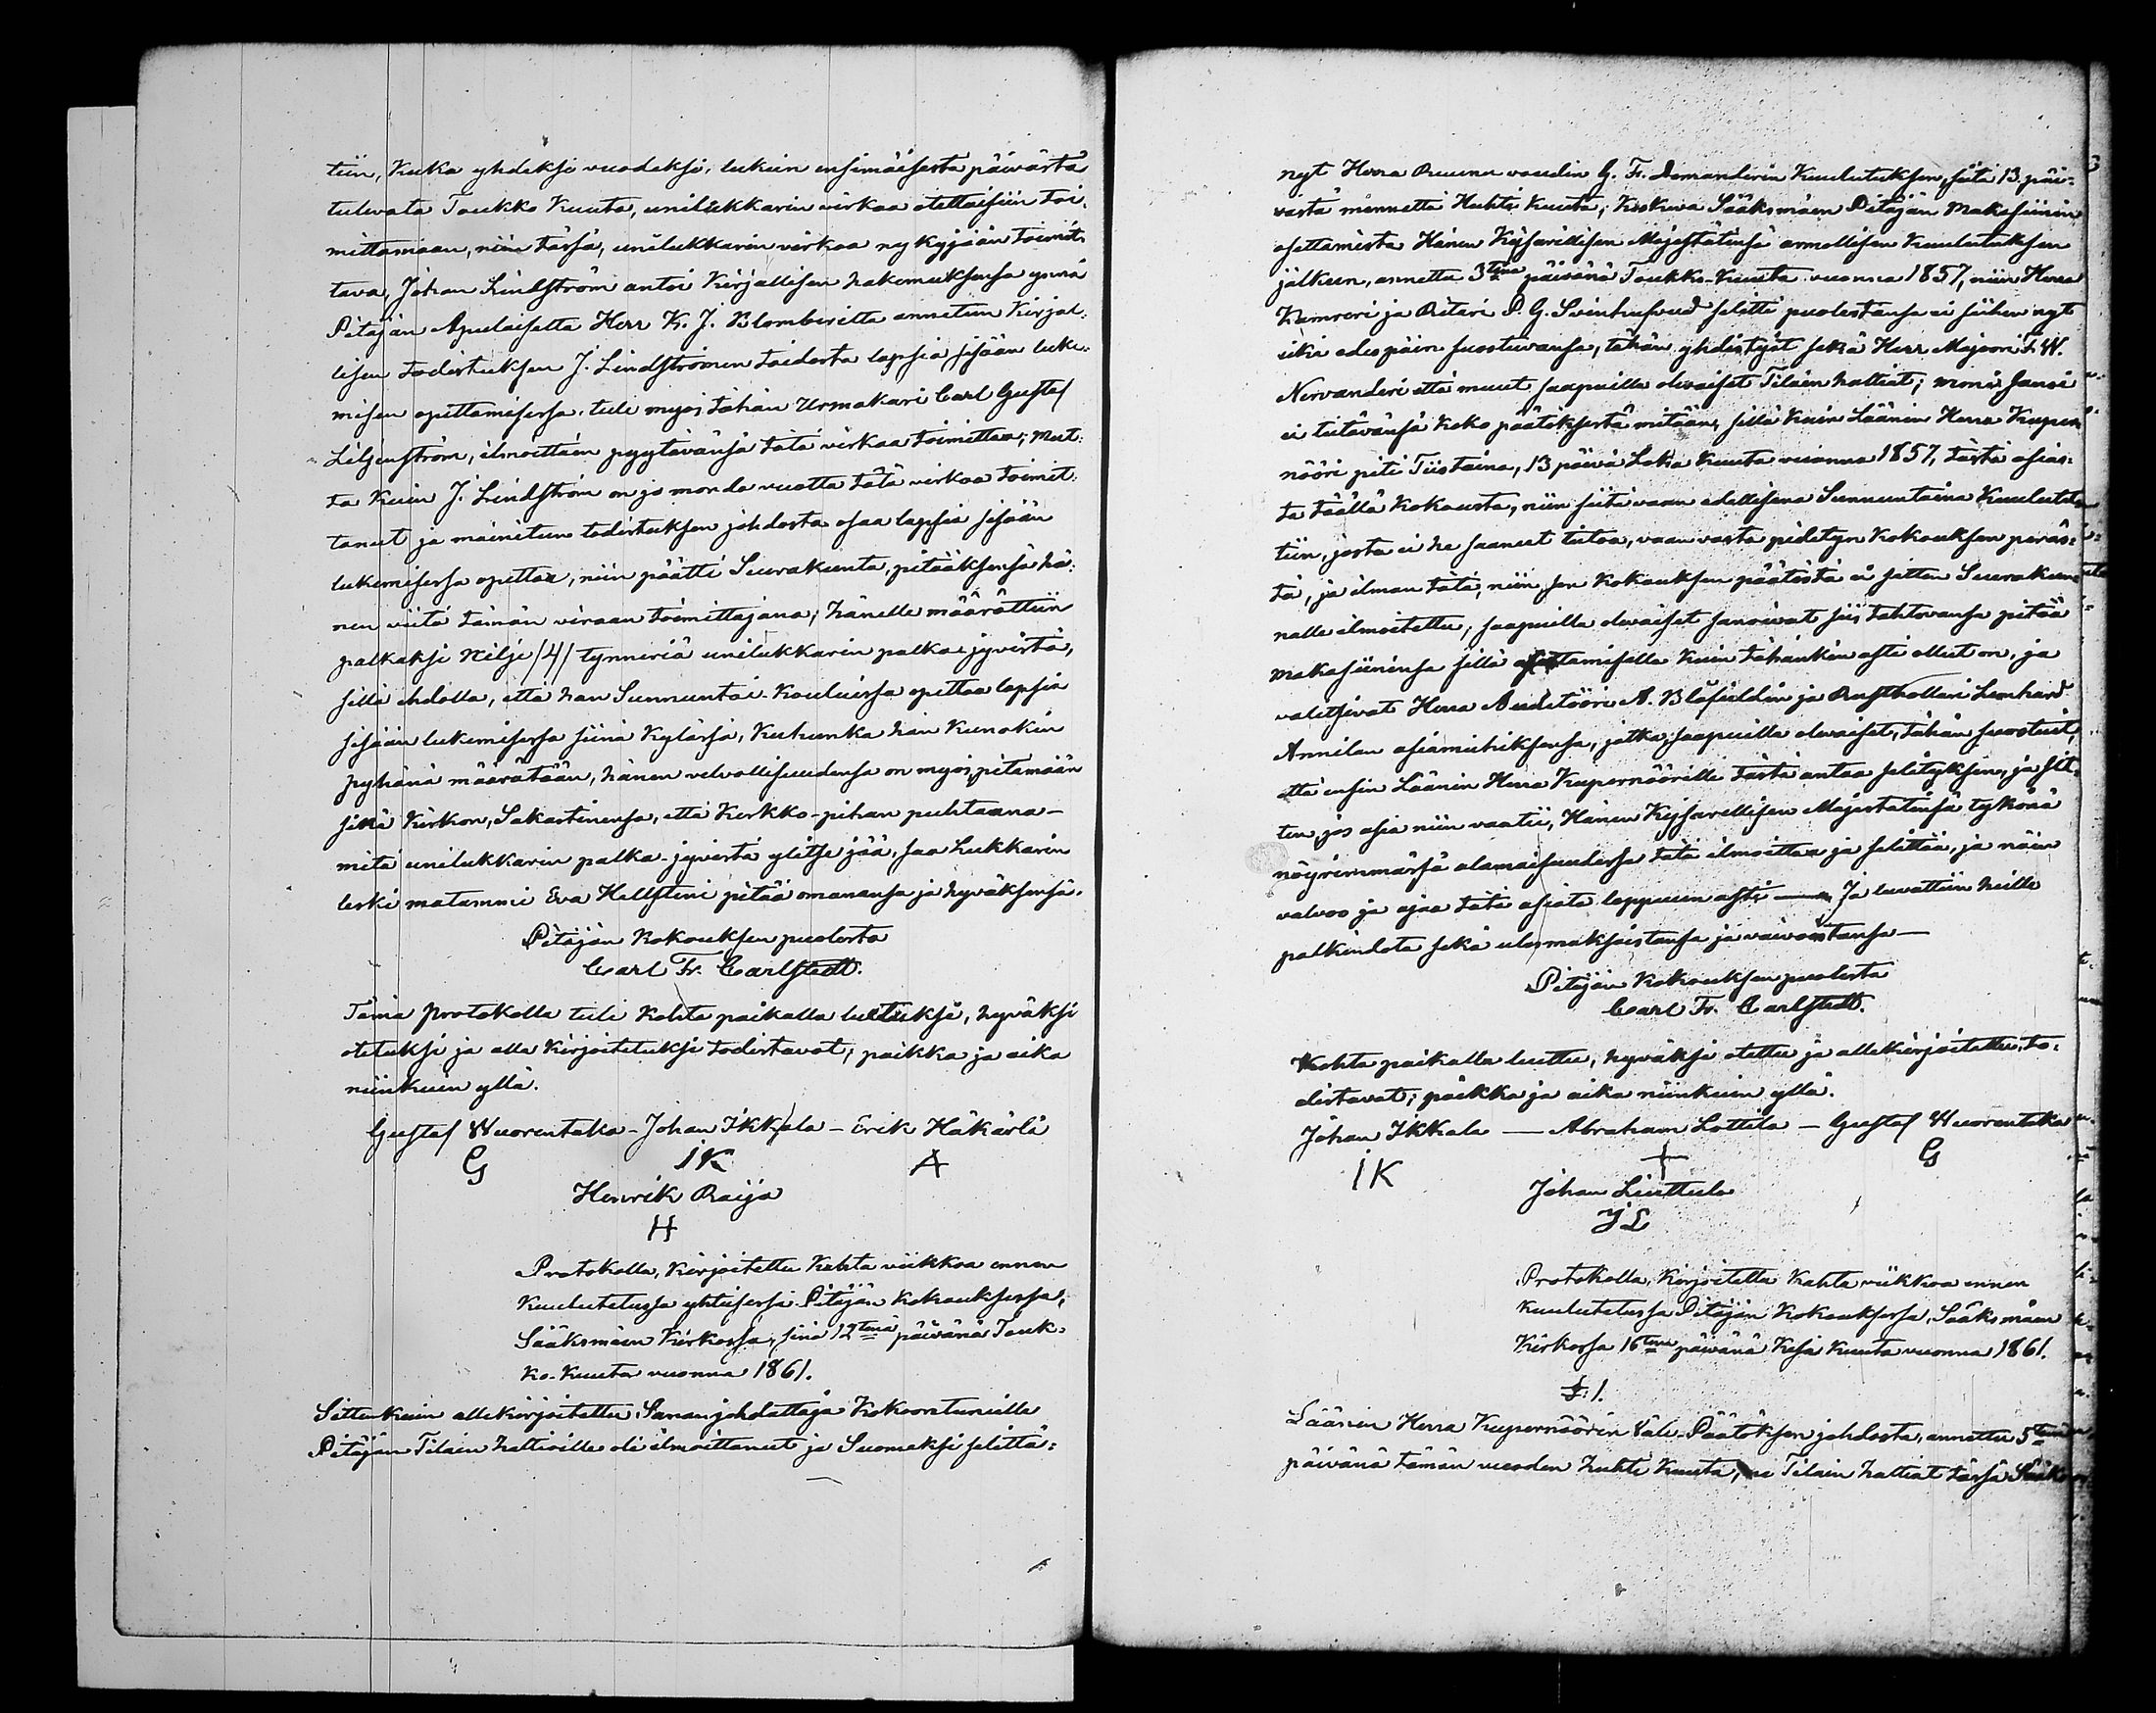 tiin, Kuka yhdeksi vuodeksi, lukein ensimäisestä päivästä
tulevata Toukko Kuuta, unilukkarin virkaa otettaisiin toi-
mittamaan, niin tässä, unilukkarin virkaa nykyjään toimit-
tava, Johan Lindström antoi Kirjallisen hakemuksensa ynnä
Pitäjän Apulaiselta Herr K. J. Blomberilta annetun Kirjal-
lisen todistuksen J. Lindströmin taidosta lapsia sisään luke-
misen opettamisessa. tuli myös tähän Urmakari Carl Gustaf
Liljenström, ilmoittain pyytävänsä tätä virkaa toimittaa; mut-
ta Kuin J. Lindström on jo monda vuotta tätä virkaa toimit-
tanut ja mainitun todistuksen johdosta osaa lapsia sisään
lukemisessa opettaa, niin päätti Seurakunta, pitääksensä hä-
nen viitä tämän viraan toimittajana; hänelle määrättiin
palkaksi Nelje /4/ tynneriä unilukkarin palka-jyvistä,
sillä ehdolla, että hän Sunnuntai-Kouluissa opettaa lapsia
sisään lukemisessa siinä Kylässä, Kuhunka hän Kunakin
pyhänä määrätään, hänen velvollisuudensa on myös pitämään
sekä Kirkon, Sakastinensa, että Kirkko-pihan puhtaana —
mitä unilukkarin palka-jyvistä ylitse jää, saa Lukkarin
leski matammi Eva Hellsteni pitää omanansa ja hyväksensä.
Pitäjän Kokouksen puolesta
Carl Fr. Carlstedt.
Tämä Protokolla tuli Kohta paikalla luetuksi, hyväksi
otetuksi ja alle Kirjoitetuksi todistavat; paikka ja aika
niinkuin yllä.
Gustaf Wuorentaka - Johan Ikkala - Erik Häkärlä
G IK A
Henrik Raija
H
Protokolla, Kirjoitettu Kahta viikkoa ennen
Kuulutetussa yhteisessä Pitäjän Kokouksessa,
Sääksmäen Kirkossa, sinä 12tenä päivänä Touk-
ko-Kuuta vuonna 1861.
Sittenkuin allekirjoitettu Sanan johdattaja Kokoontuneille
Pitäjän Tilain haltioille oli ilmoittanut ja Suomeksi selittä-
nyt Herra Ruunu voudin G. Fr. Demanderin Kuulutuksen, siitä 13. päi-
västä mennettä Huhti Kuuta, Koskeva Sääksmäen Pitäjän Makasiinin
asettamista Hänen Kejsarillisen Majestätinsä armollisen Kuulutuksen
jälkeen, annettu 3tena päivänä Toukko-Kuuta vuonna 1857, niin Herra
Kamreri ja Ritari P. G. Svinhufvud selitti puolestansa ei siihen nyt
eikä edespäin suostuvansa, tähän yhdistyit sekä Herr Majoori F. W.
Nervanderi että muut saapuilla olevaiset Tilain haltiat; moni sanoi
ei tietävänsä koko päätöksestä mitään, sillä Kuin Läänin Herra Kuper-
nööri piti Tiistaina, 13 päivä Loka Kuuta vuonna 1857, tästä asias-
ta täällä Kokousta, niin siitä vaan edellisenä Sunnuntaina Kuulutet-
tiin, josta ei he saaneet tietoa, vaan vasta pidetyn Kokouksen peräs-
tä, ja ilman tätä, niin sen Kokouksen päätöstä ei sitten Seurakun-
nalle ilmoitettu; saapuilla olevaiset sanoivat siis tahtovansa pitää
makasiininsa sillä asettamisella Kuin tähänkin asti ollut on, ja
valitsivat Herra Auditööri A. Blåfieldin ja Rusthollari Lenhard
Annilan asiamiehiksensä, jotka, saapuilla olevaiset, tähän suostuit,
että ensin Läänin Herra Kupernöörille tästä antaa selityksen, ja sit-
ten, jos asia niin vaatii, Hänen Kejsarillisen Majestätinsä tykönä
nöyrimmässä alamaisuudessa tätä ilmoittaa ja selittää, ja näin
valvoo ja ajaa tätä asiata loppuun asti — Ja luvattiin heille
palkindota sekä ulosmaksoistansa ja vaivoistansa —
Pitäjän Kokouksen puolesta
Carl Fr. Carlstedt.
Kohta paikalla luettu, hyväksi otettu ja allekirjoitettu, to-
distavat; paikka ja aika niinkuin yllä.
Johan Ikkala — Abraham Lottila — Gustaf Wuorentaka
IK + G
Johan Liuttula
JL
Protokolla, Kirjoitettu Kahta viikkoa ennen
kuulutetussa Pitäjän Kokouksessa, Sääksmäen
Kirkossa 16tena päivänä Kesä Kuuta vuonna 1861.
§. 1.
Läänin Herra Kupernöörin Väli-Päätöksen johdosta, annettu 5tena
päivänä tämän vuoden Huhti Kuuta, ne Tilain haltiat tässä Sääks-